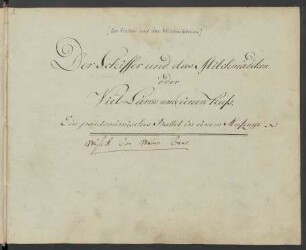 [Der Fischer und das Milchmädchen]
Der Schiffer und das Milchmädchen
oder
Viel Lärm um einen Kuß.
Ein pantomimisches Ballet in einem Aufzuge
Musik von